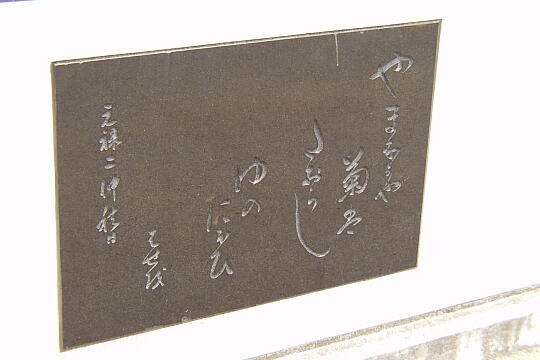 やまなかや
菊は
たおらじ
ゆの
にほひ
はせを
元禄二仲秋日